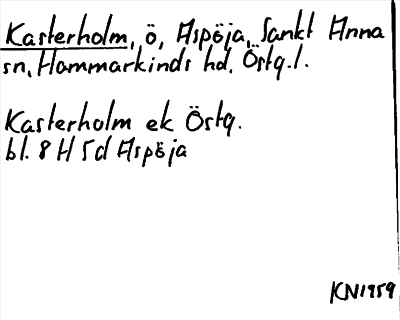 Kasterholm, ö, Aspöja, Sankt Anna
sn, Hammarkinds hd, Östg.l.
Kasterholm ek Östg.
bl. 8 H 5d Aspöja
KN1959